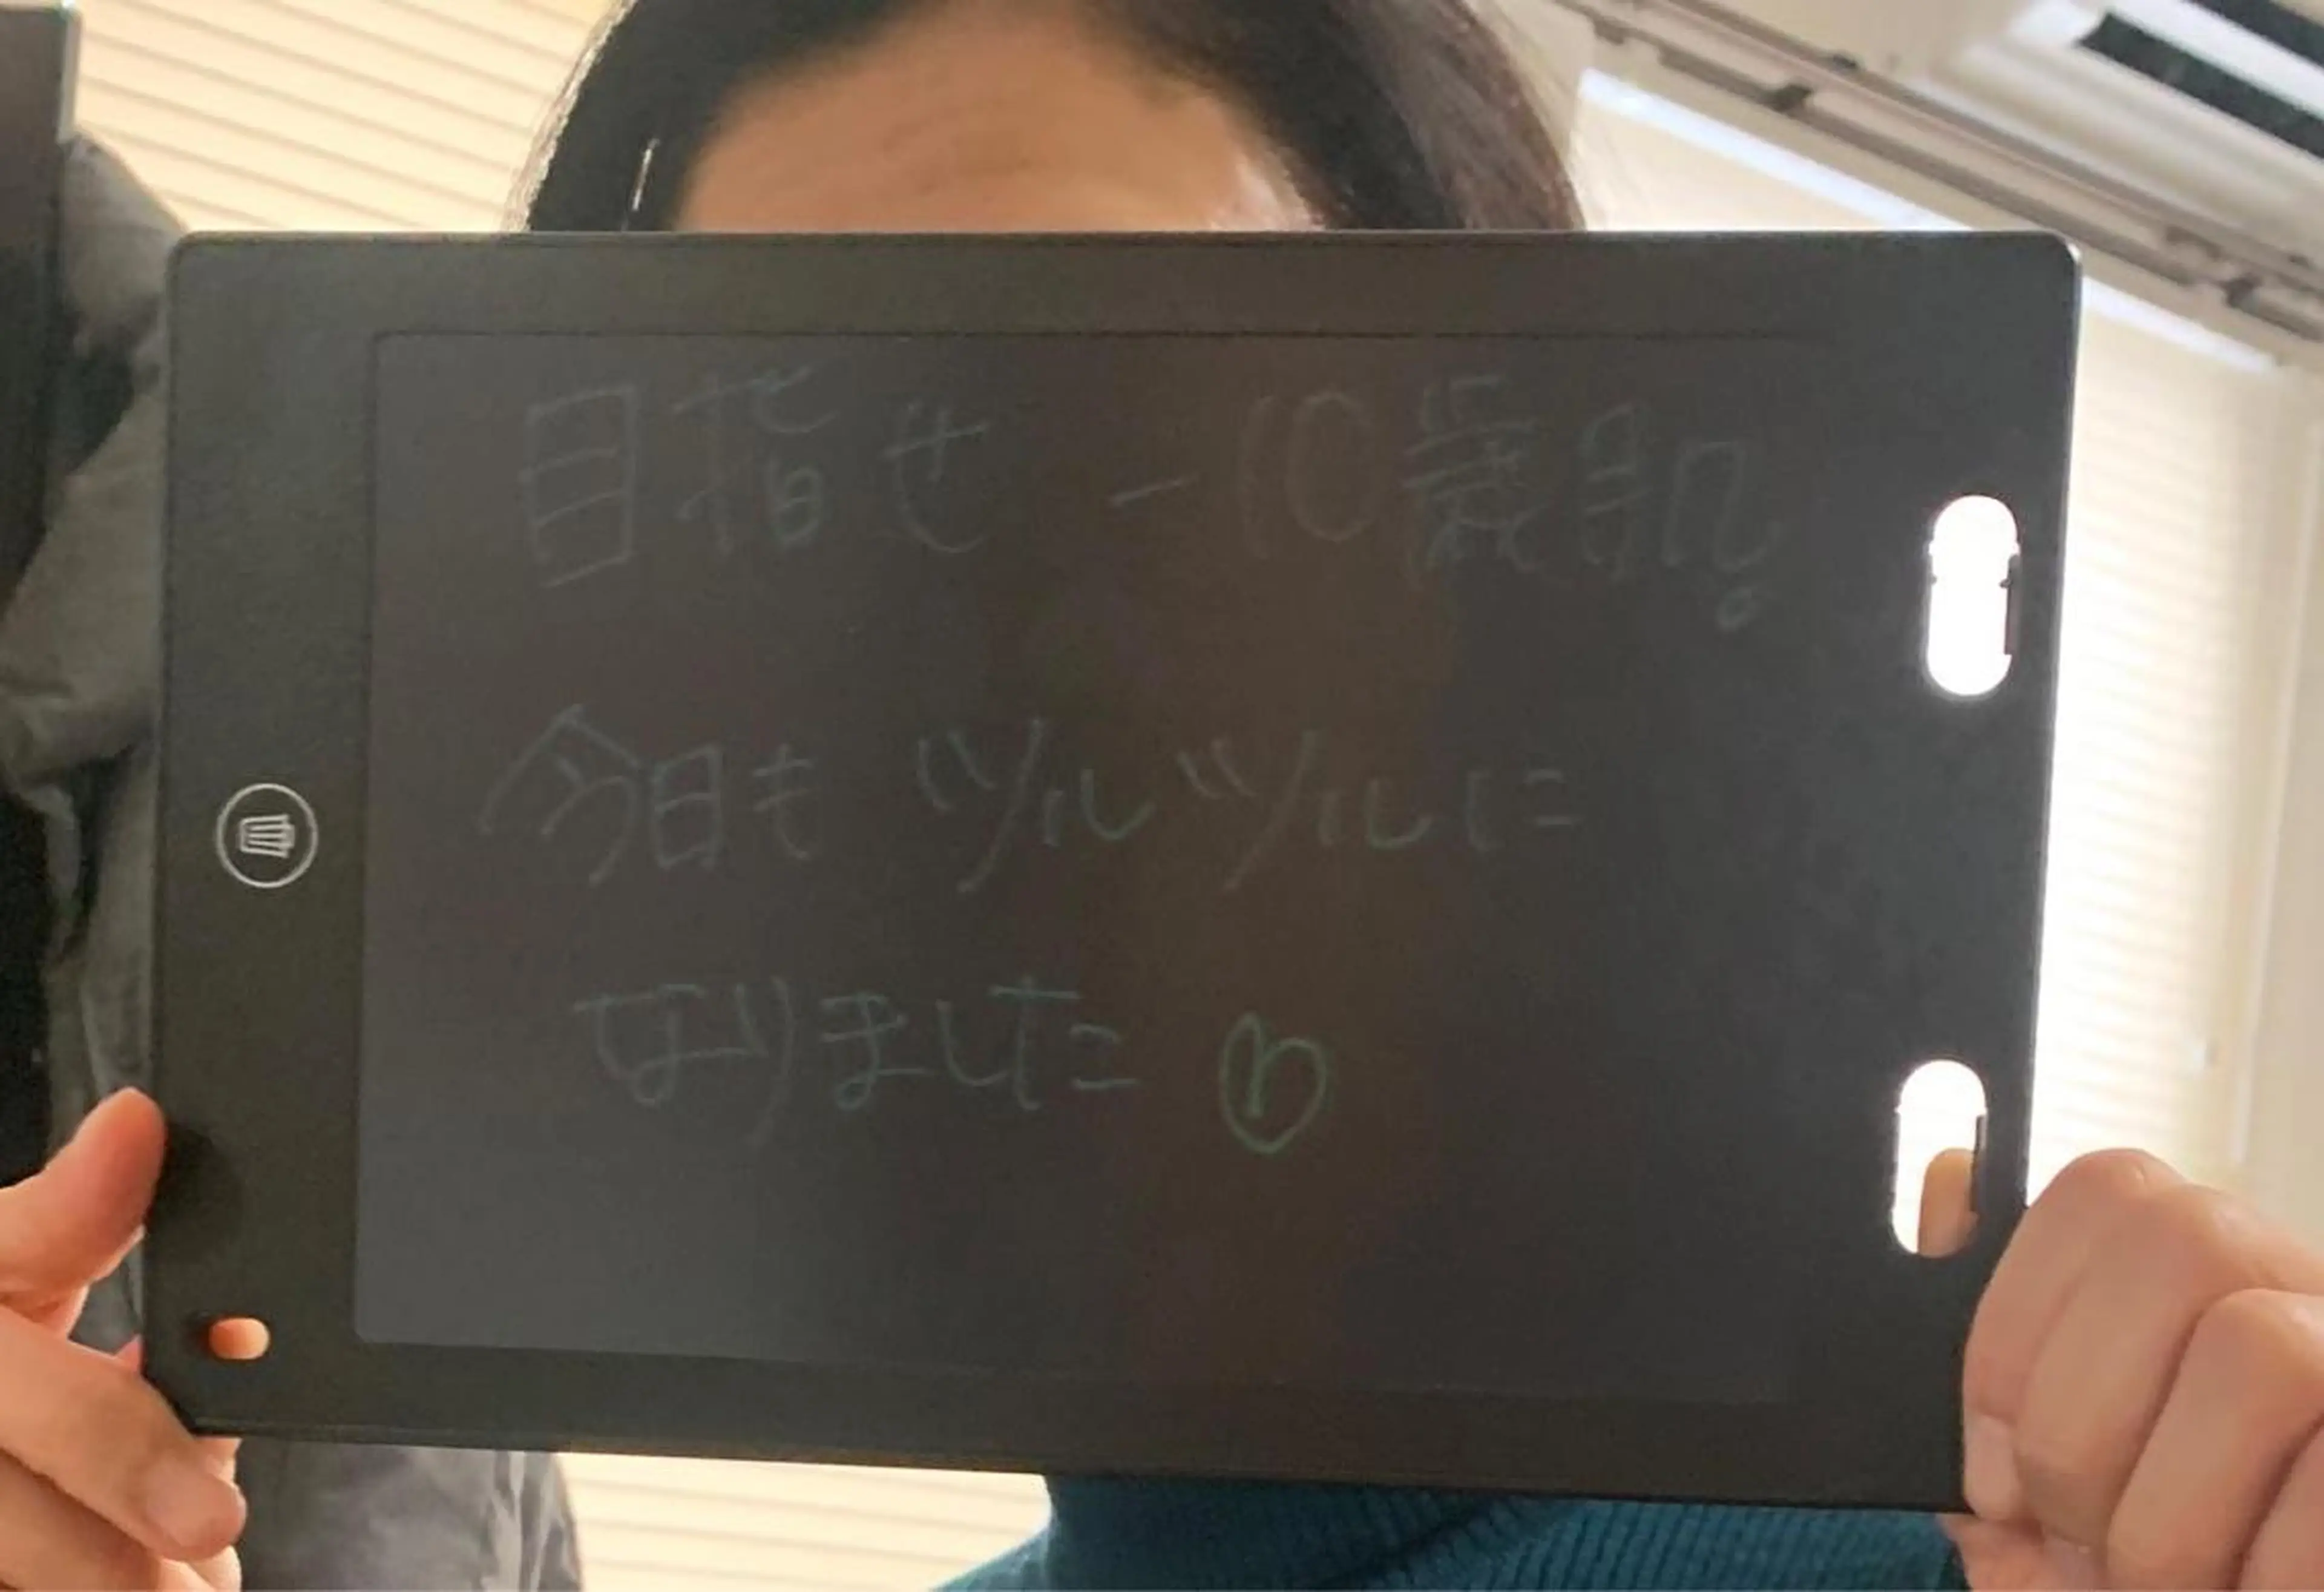 目指せ -10歳肌。
今日も ツルツルに
なりました♡